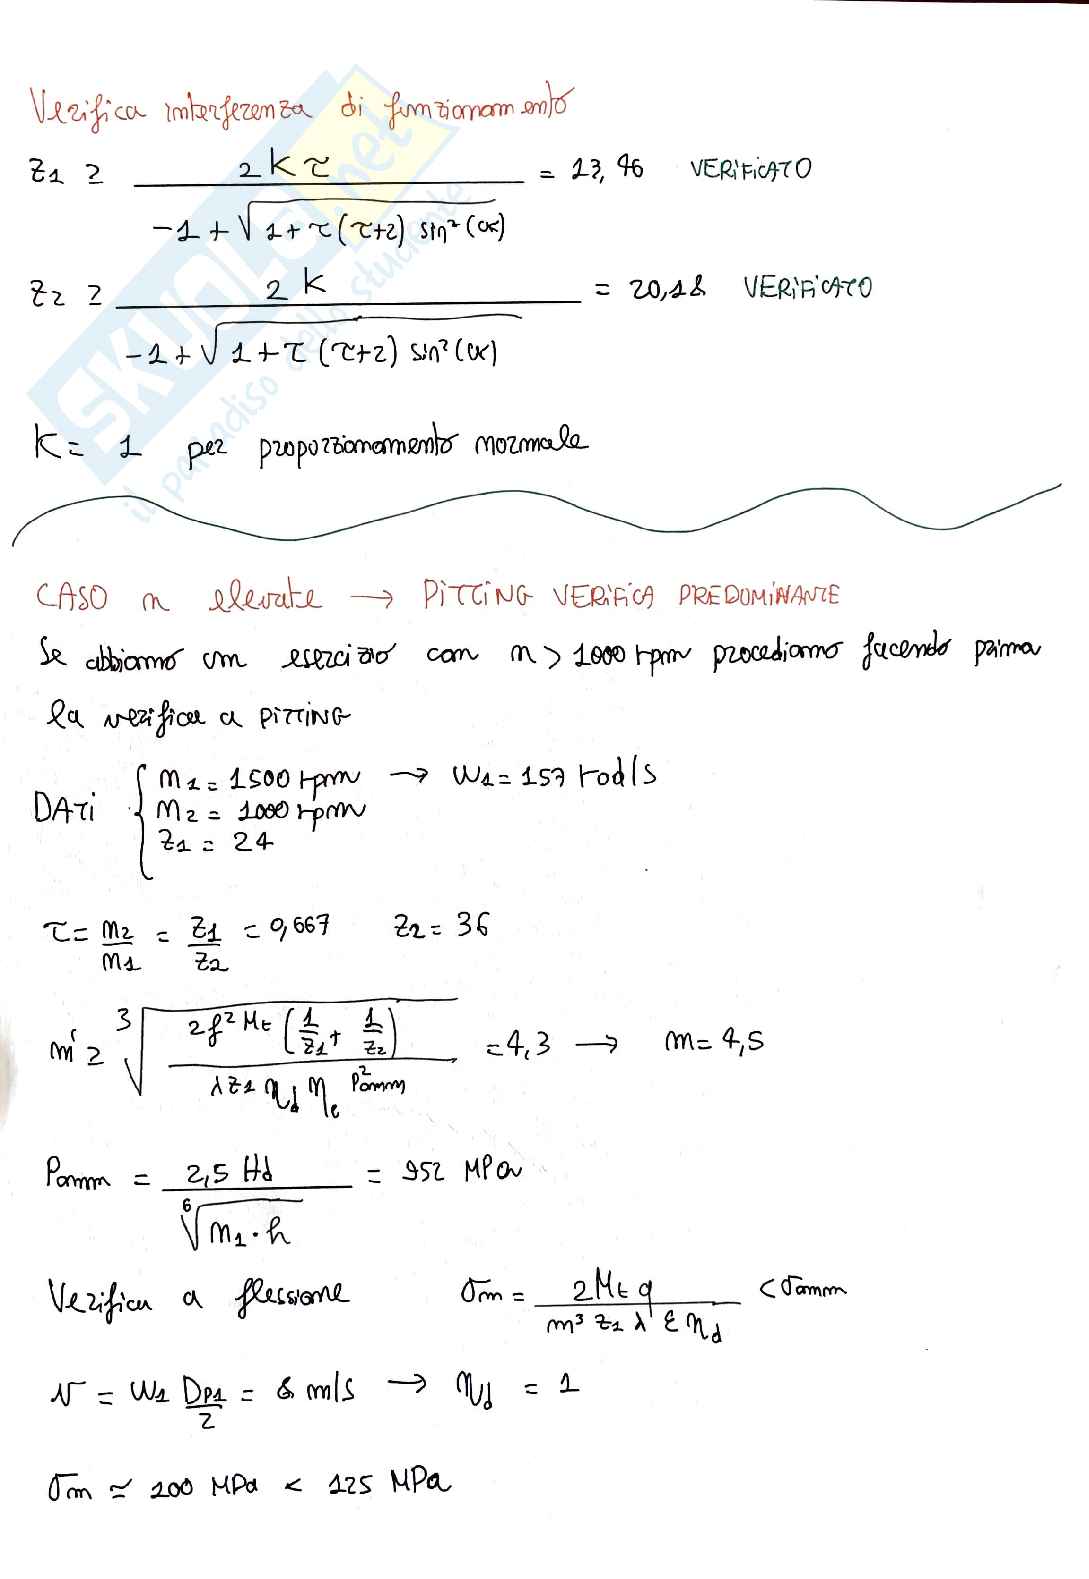 Verifica interferenza di funzionamento
Z1 ≥ 2 k τ / (-1 + √(1 + τ(τ+2) sin²(α))) = 13,46 VERIFICATO
Z2 ≥ 2 k / (-1 + √(1 + τ(τ+2) sin²(α))) = 20,18 VERIFICATO
K = 1 per proporzionamento normale
CASO n elevate → PITTING VERIFICA PREDOMINANTE
Se abbiamo un esercizio con n > 1000 rpm procediamo facendo prima
la verifica a PITTING
DATI { n1 = 1500 rpm → W1 = 157 rad/s
n2 = 1000 rpm
Z1 = 24
τ = n2/n1 = Z1/Z2 = 0,667 Z2 = 36
m ≥ ∛(2f² Mt (1/Z1 + 1/Z2) / (λ Z1 ηd ηe P²amm)) = 4,3 → m = 4,5
Pamm = 2,5 Hd / ⁶√(n1 · h) = 952 MPa
Verifica a flessione σm = 2 Mt q / (m³ Z1 λ ε ηd) < σamm
v = W1 Dp1/2 = 8 m/s → ηd = 1
σm ≃ 100 MPa < 125 MPa
SKUOLA.net
il paradiso dello studente